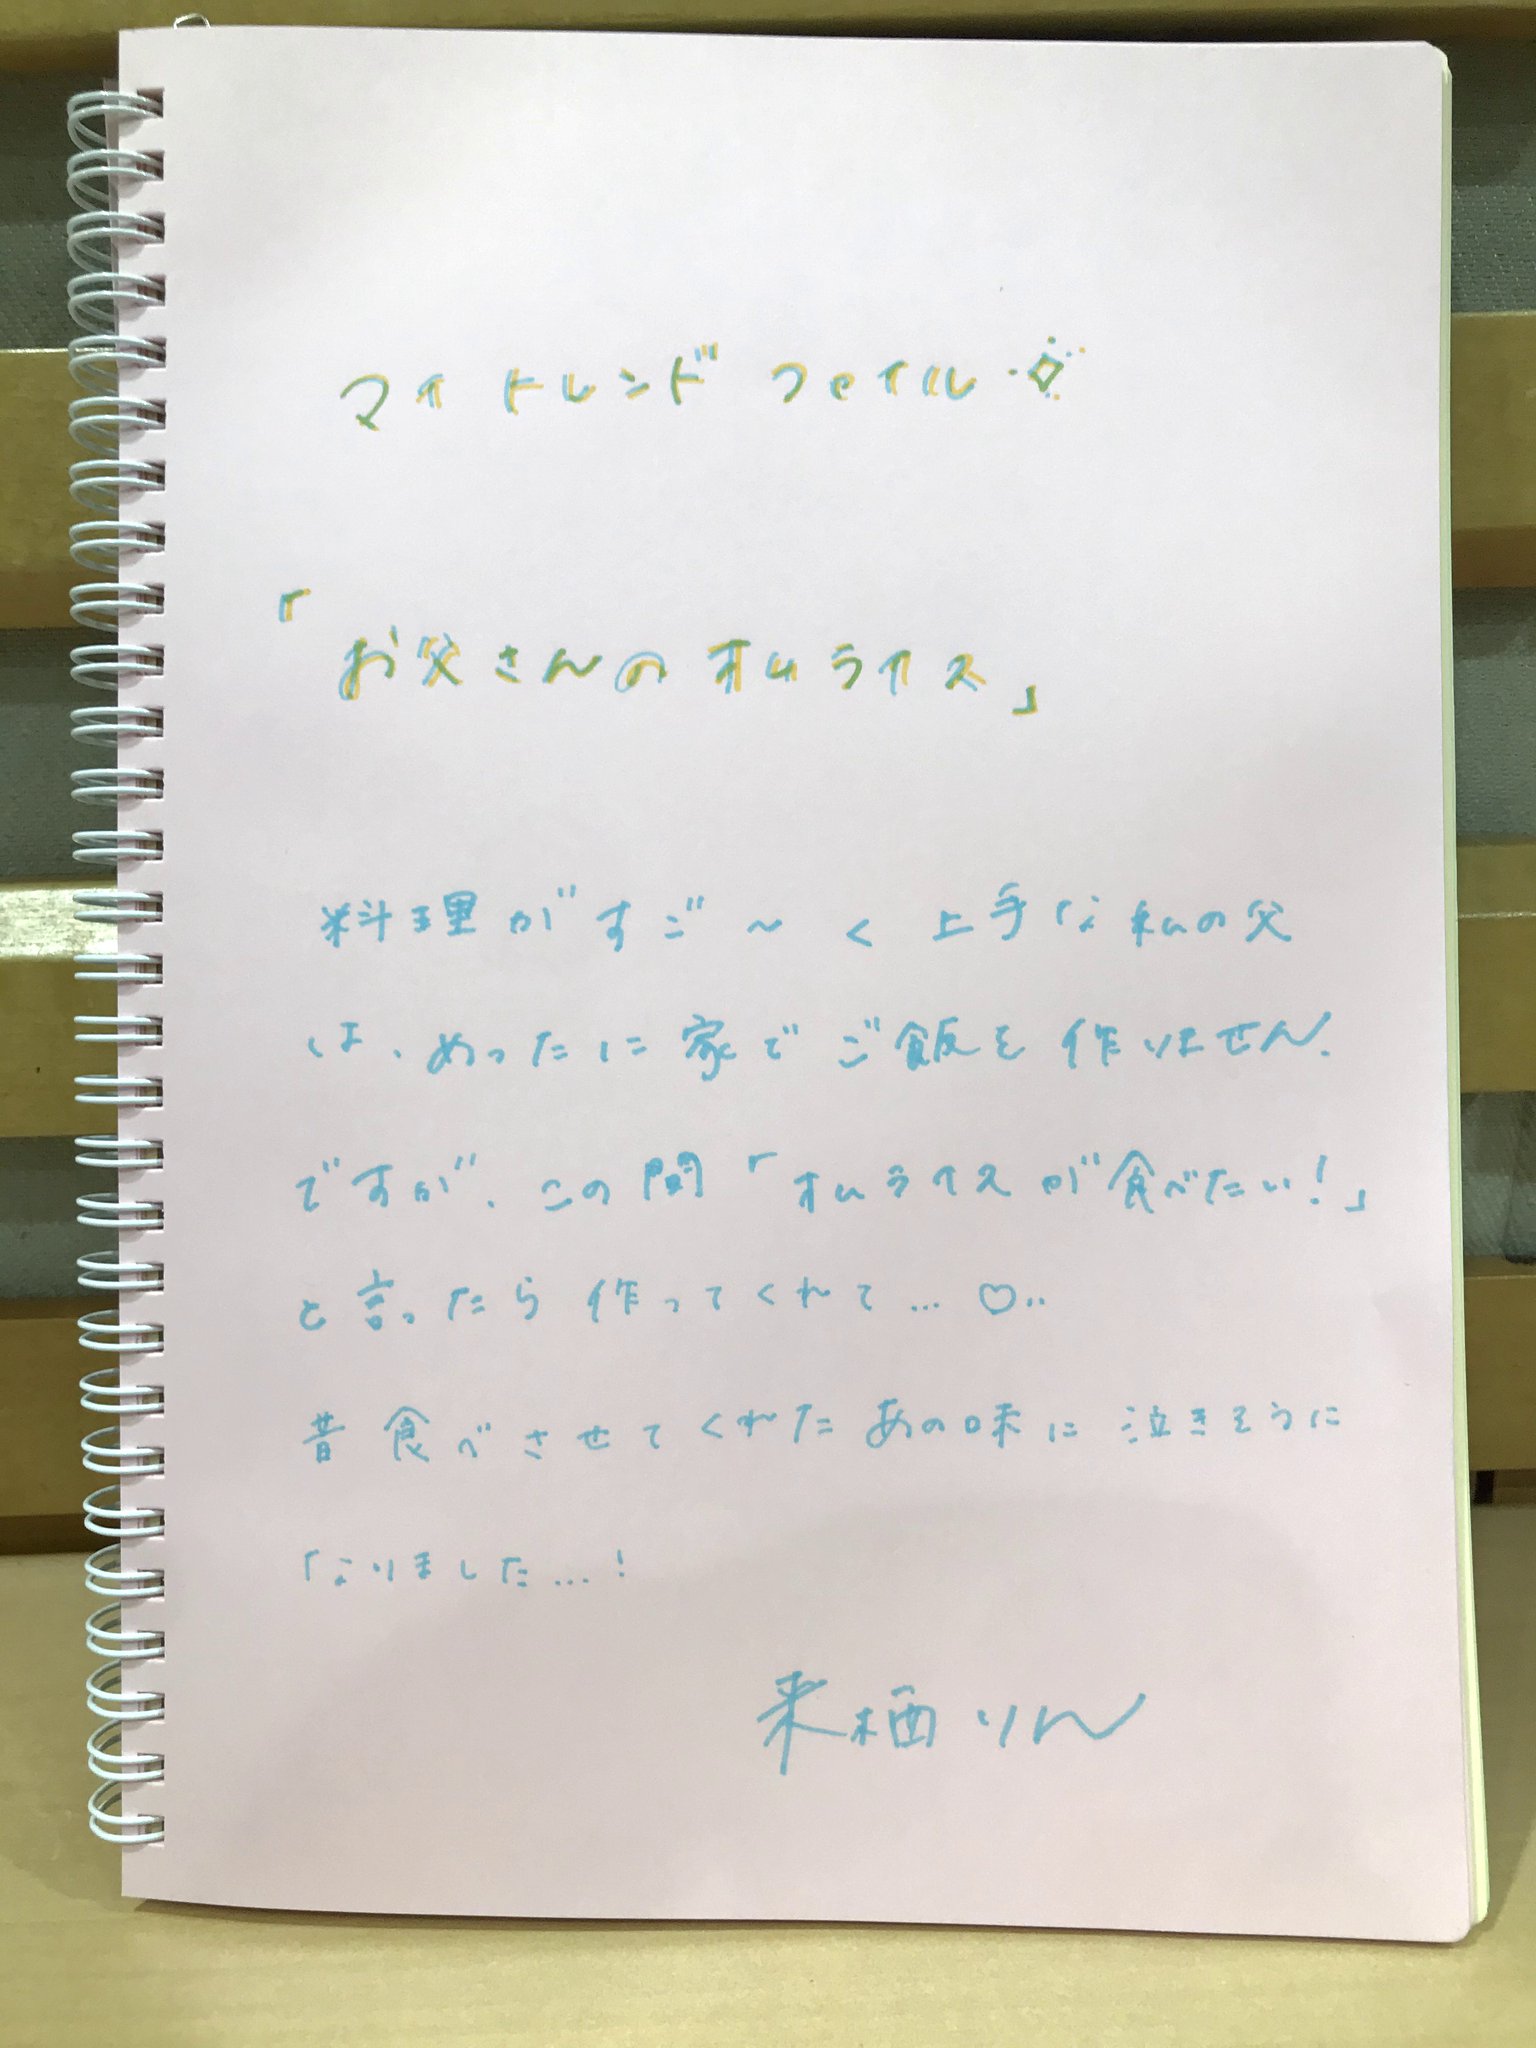 マイトレンドファイル
「お父さんのオムライス」
料理がすご〜く上手な私の父
は、めったに家でご飯を作りません.
ですが、この間「オムライスが食べたい!」
と言ったら作ってくれて…♡..
昔食べさせてくれたあの味に泣きそうに
なりました…!
来栖りん